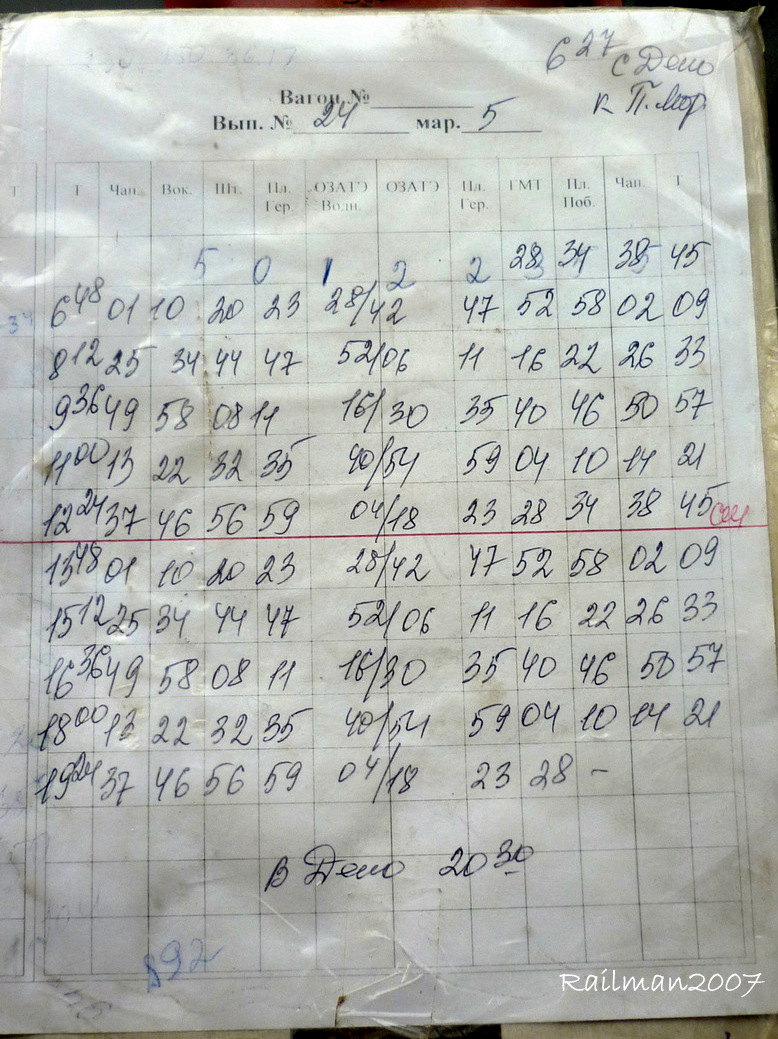 6 27 с Депо
к П. Мор.
Вагон №
Вып. № 24 мар. 5
Т Т Чап. Вок. Шт. Пл. Гер. ОЗАТЭ Водн. ОЗАТЭ Пл. Гер. ГМТ Пл. Поб. Чап. Т
28 34 38 45
5 0 1 2 2
6 48 01 10 20 23 28/42 47 52 58 02 09
8 12 25 34 44 47 52/06 11 16 22 26 33
9 36 49 58 08 11 16/30 35 40 46 50 57
11 00 13 22 32 35 40/54 59 04 10 14 21
12 24 37 46 56 59 04/18 23 28 34 38 45
13 48 01 10 20 23 28/42 47 52 58 02 09
15 12 25 34 44 47 52/06 11 16 22 26 33
16 36 49 58 08 11 16/30 35 40 46 50 57
18 00 13 22 32 35 40/54 59 04 10 14 21
19 24 37 46 56 59 04/18 23 28 –
в Депо 20 30
892
Railman2007